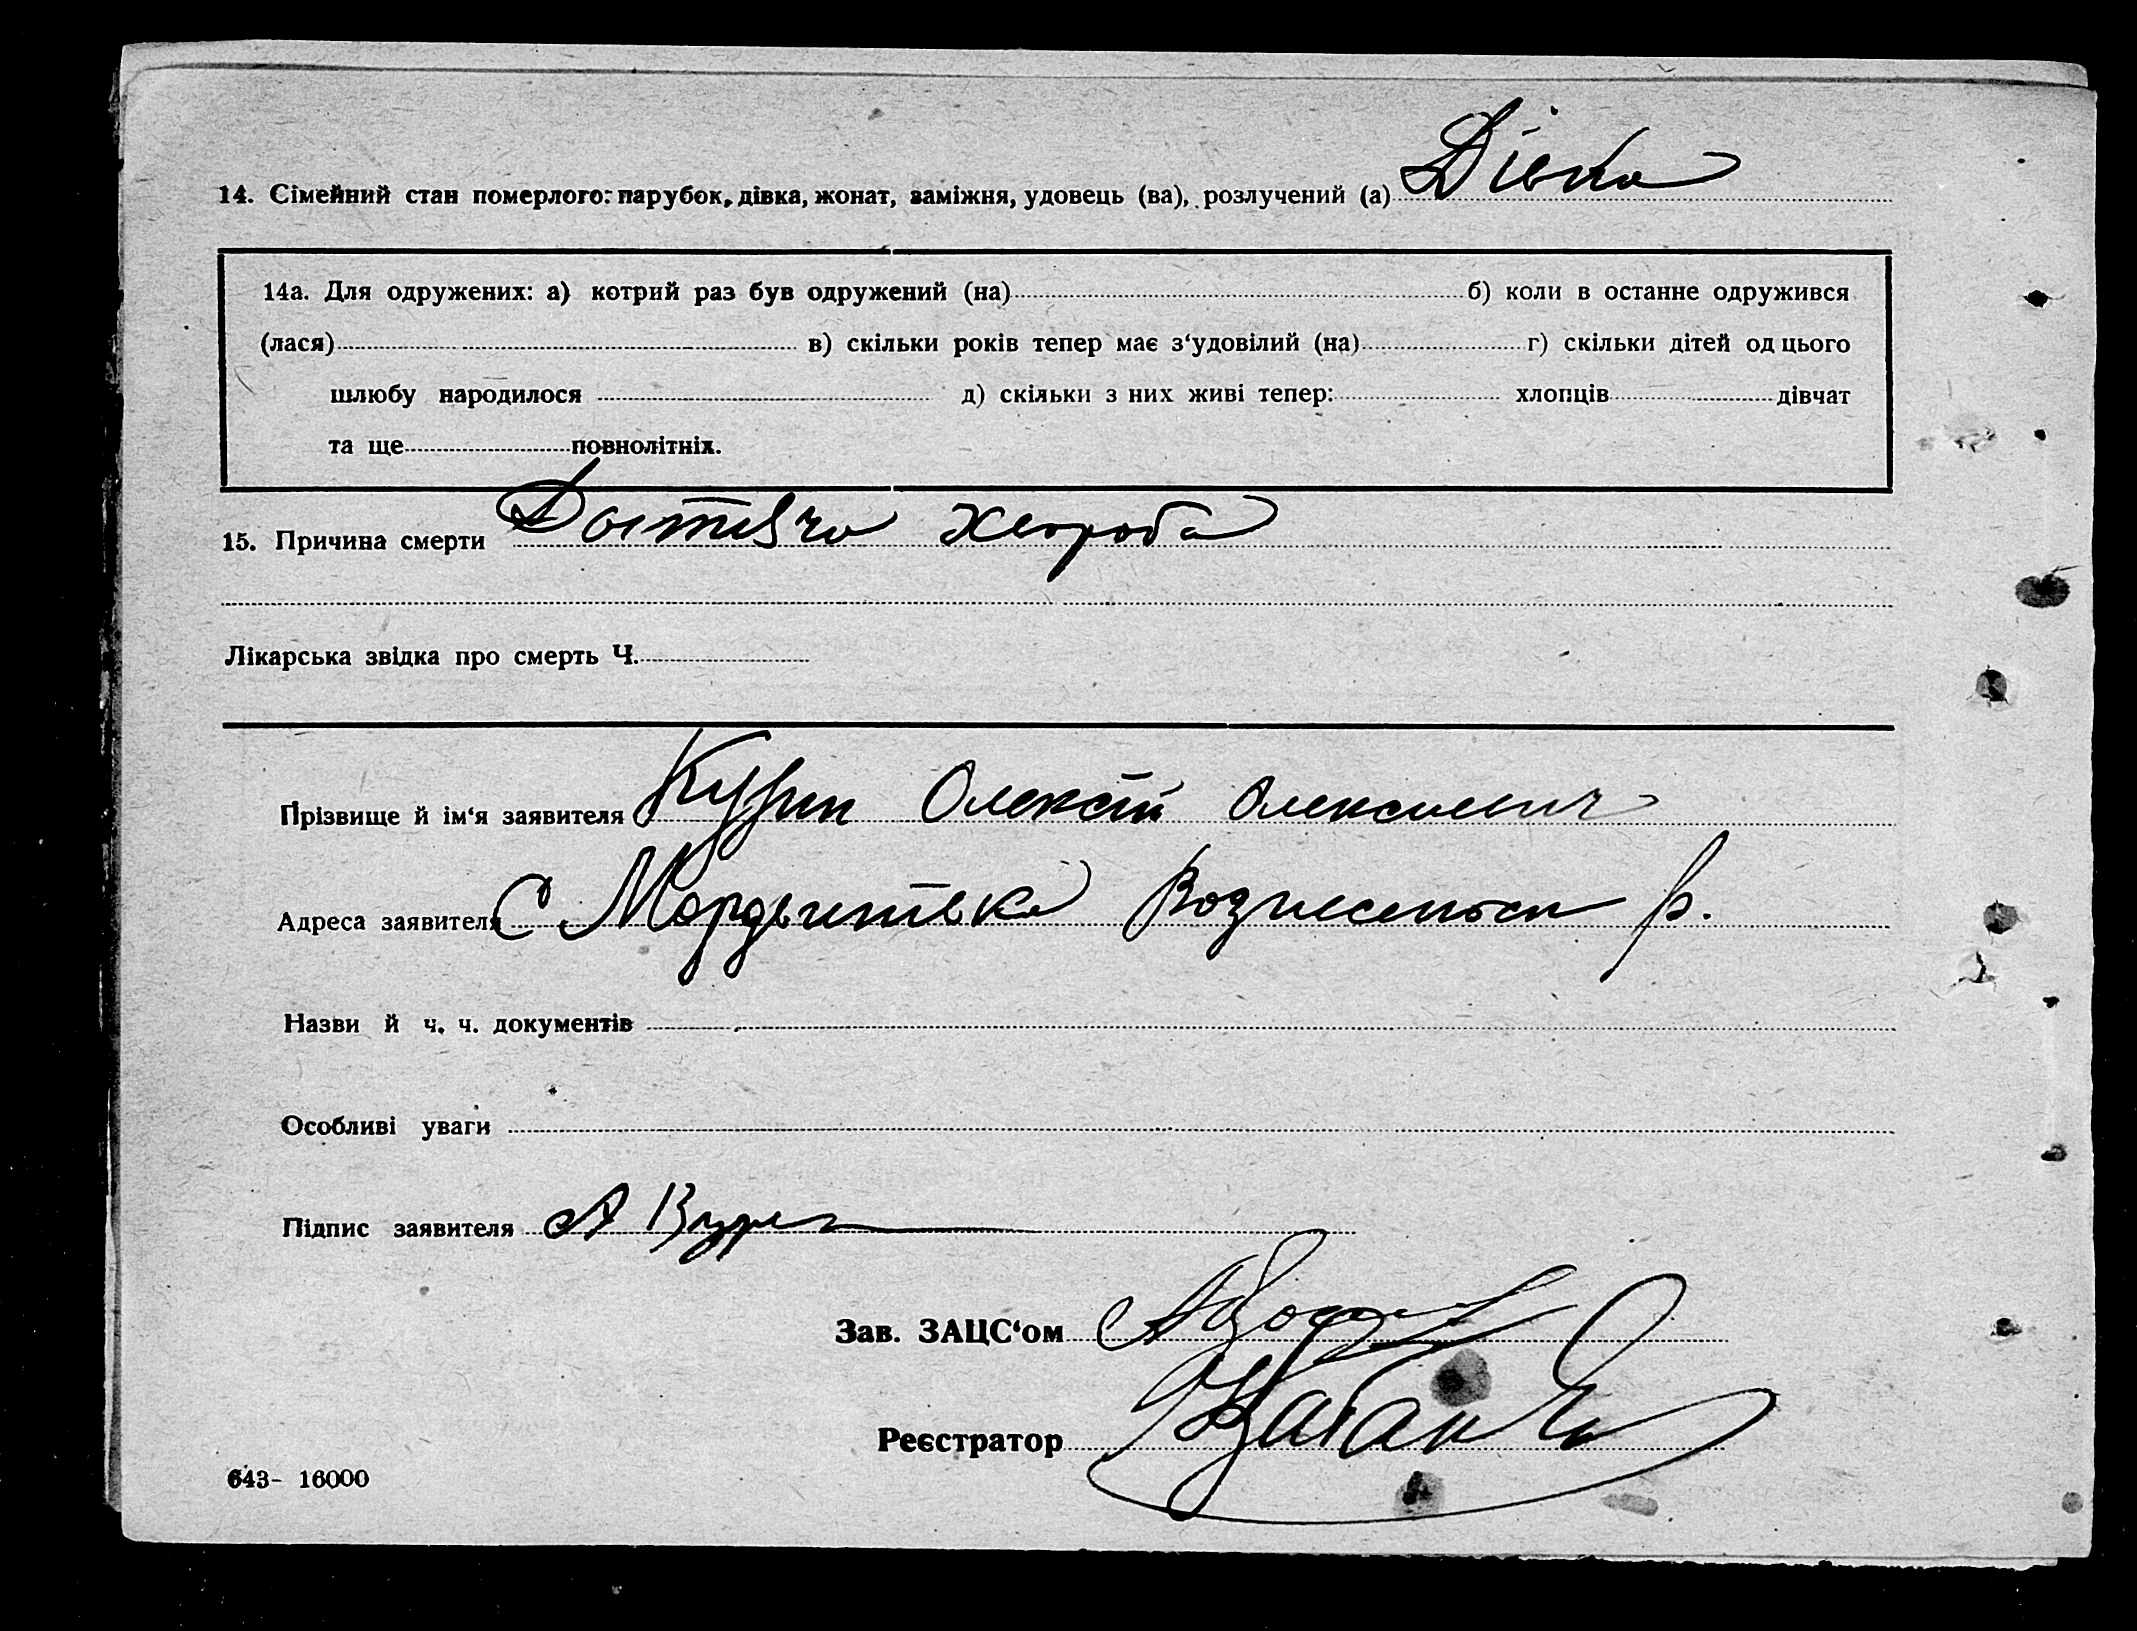 14. Сімейний стан померлого: парубок, дівка, жонат, заміжня, удовець (ва), розлучений (а) Дівка
14а. Для одружених: а) котрий раз був одружений (на) б) коли в останне одружився
(лася) в) скільки років тепер має з‘удовілий (на) г) скільки дітей од цього
шлюбу народилося д) скільки з них живі тепер: хлопців дівчат
та ще повнолітніх.
15. Причина смерти хвороба
Лікарська звідка про смерть Ч.
Прізвище й ім‘я заявителя Олексій Олексиевич
Адреса заявителя С Вознесенськ р.
Назви й ч. ч. документів
Особливі уваги
Підпис заявителя А
Зав. ЗАЦС‘ом
Реєстратор
643- 16000